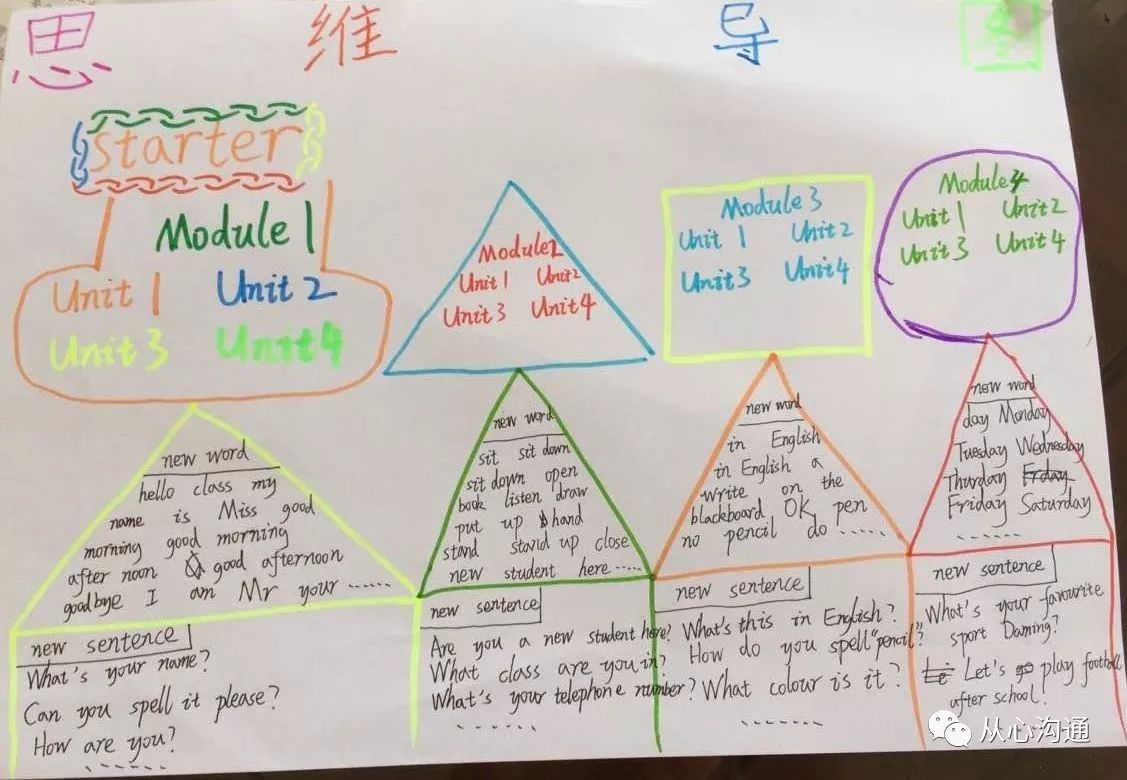 思 维 导 图
starter
Module 1
Unit 1 Unit 2
Unit 3 Unit 4
Module 2
Unit 1 Unit 2
Unit 3 Unit 4
Module 3
Unit 1 Unit 2
Unit 3 Unit 4
Module 4
Unit 1 Unit 2
Unit 3 Unit 4
new word
hello class my
name is Miss good
morning good morning
after noon good afternoon
goodbye I am Mr your ......
new sentence
What's your name?
Can you spell it please?
How are you?
......
new word
sit sit down
sit down open
book listen draw
put up hand
stand stand up close
new student here ......
new sentence
Are you a new student here?
What class are you in?
What's your telephone number?
......
new word
in English
in English a
write on the
blackboard OK pen
no pencil do ......
new sentence
What's this in English?
How do you spell "pencil"?
What colour is it?
......
new word
day Monday
Tuesday Wednesday
Thurday Frday
Friday Saturday
......
new sentence
What's your favourite
sport Daming?
Let's go play football
after school.
从心沟通